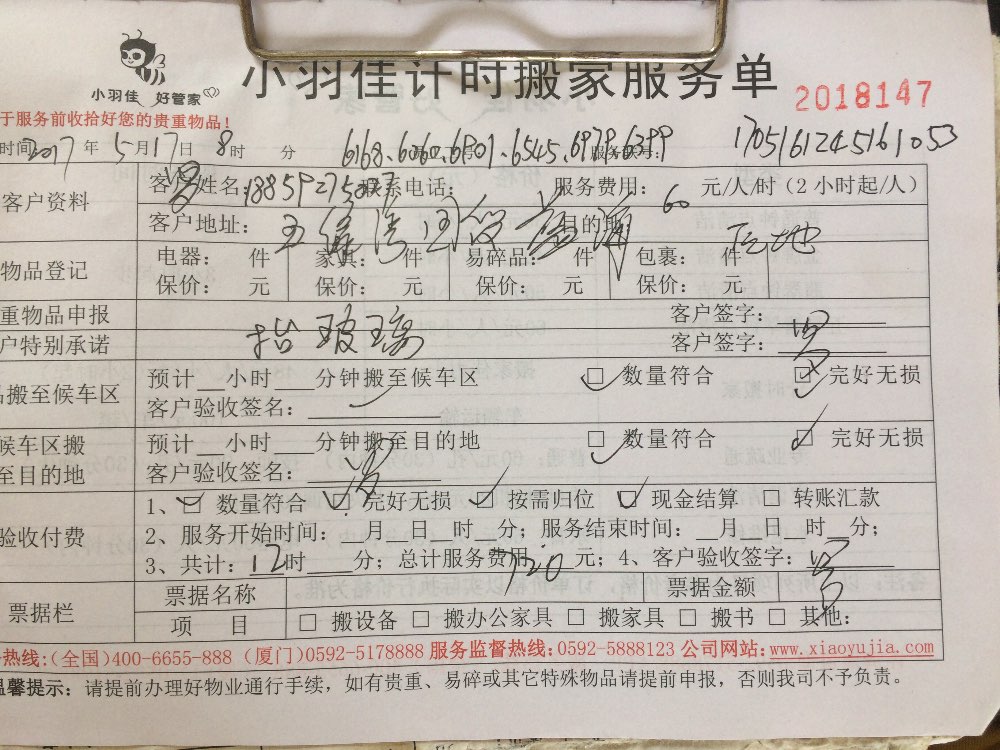 小羽佳 好管家
小羽佳计时搬家服务单
2018147
于服务前收拾好您的贵重物品！
时间 2017 年 5 月 17 日 8 时 分 6168、6060、6901、6545、6978、6399 170516124516 1053
客户资料
客户姓名： 18859275 联系电话： 服务费用： 60 元/人/时（2 小时起/人）
客户地址： 目的地
物品登记
电器： 件 家具： 件 易碎品： 件 包裹： 件
保价： 元 保价： 元 保价： 元 保价： 元
重物品申报 客户签字：
户特别承诺 抬玻璃 客户签字：
搬至候车区
预计 小时 分钟搬至候车区 □ 数量符合 □ 完好无损
客户验收签名：
候车区搬
至目的地
预计 小时 分钟搬至目的地 □ 数量符合 □ 完好无损
客户验收签名：
验收付费
1、□ 数量符合 □ 完好无损 □ 按需归位 □ 现金结算 □ 转账汇款
2、服务开始时间： 月 日 时 分；服务结束时间： 月 日 时 分；
3、共计：12时 分；总计服务费用 720 元；4、客户验收签字：
票据栏
票据名称 票据金额
项 目 □ 搬设备 □ 搬办公家具 □ 搬家具 □ 搬书 □ 其他：
热线：（全国）400-6655-888（厦门）0592-5178888 服务监督热线：0592-5888123 公司网站：www.xiaoyujia.com
温馨提示：请提前办理好物业通行手续，如有贵重、易碎或其它特殊物品请提前申报，否则我司不予负责。